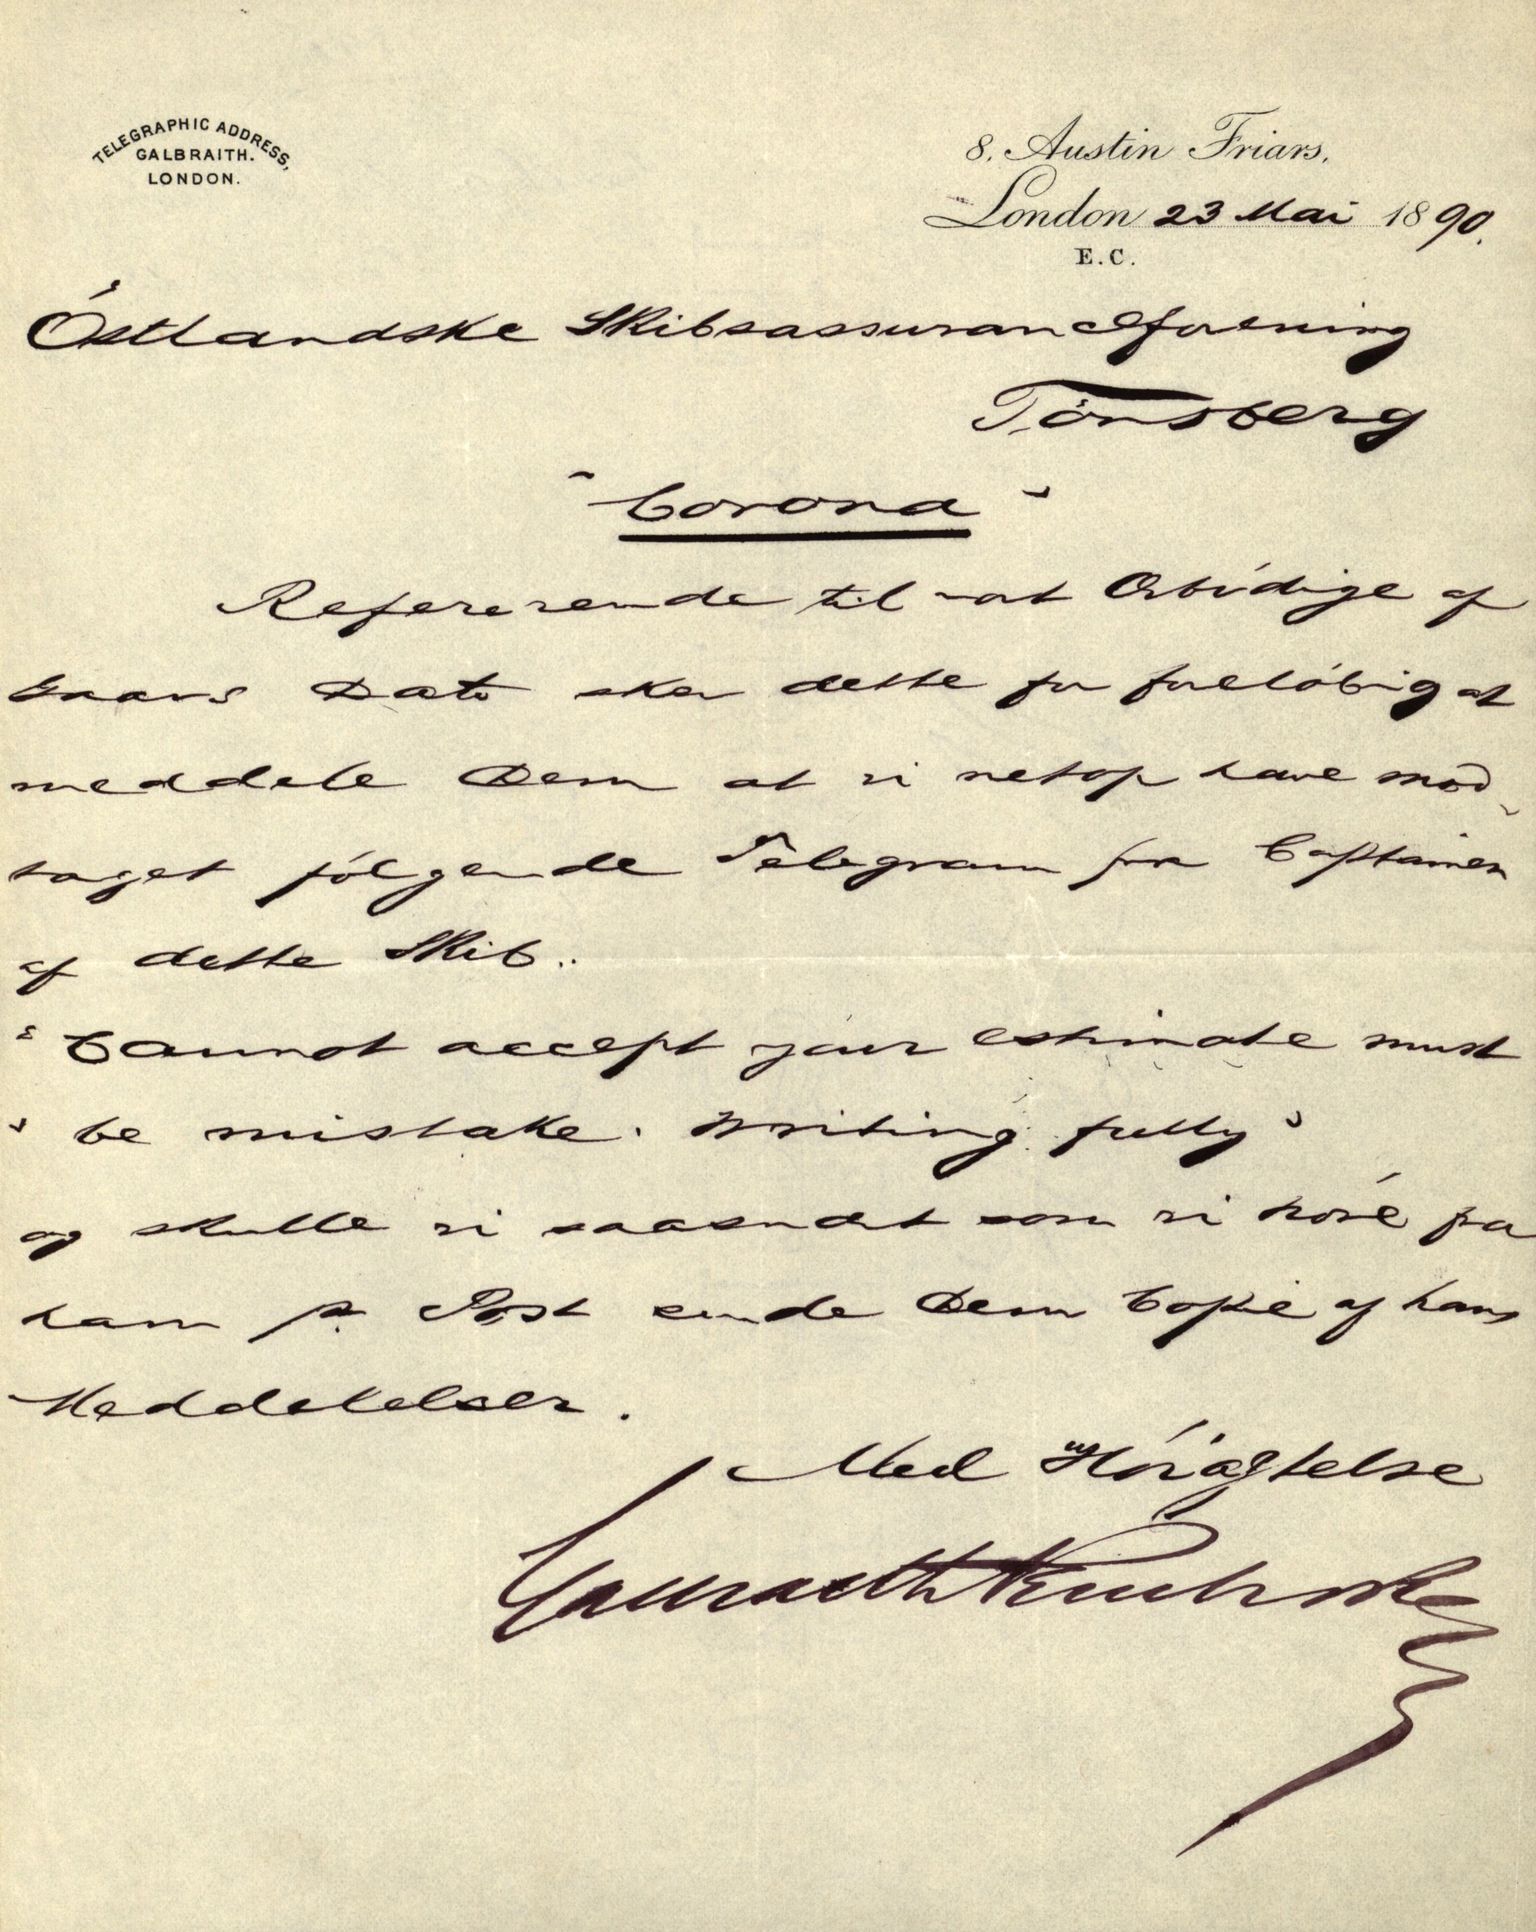 TELEGRAPHIC ADDRESS,
GALBRAITH.
LONDON.
8, Austin Friars,
London 23 Mai 1890.
E.C.
Östlandske Skibsassuranceforening
Tönsberg
"Corona"
Refererende til vort Erbödige af
Gaars Dato sker dette for foreløbig at
meddele Dem at vi netop have mod-
taget fölgende Telegram fra Captainen
af dette Skib..
"Cannot accept your estimate must
" be mistake. Writing fully"
og skulle vi saasnart som vi höre fra
ham pr Post sende Dem Copie af hans
Meddelelser.
Med Höiagtelse